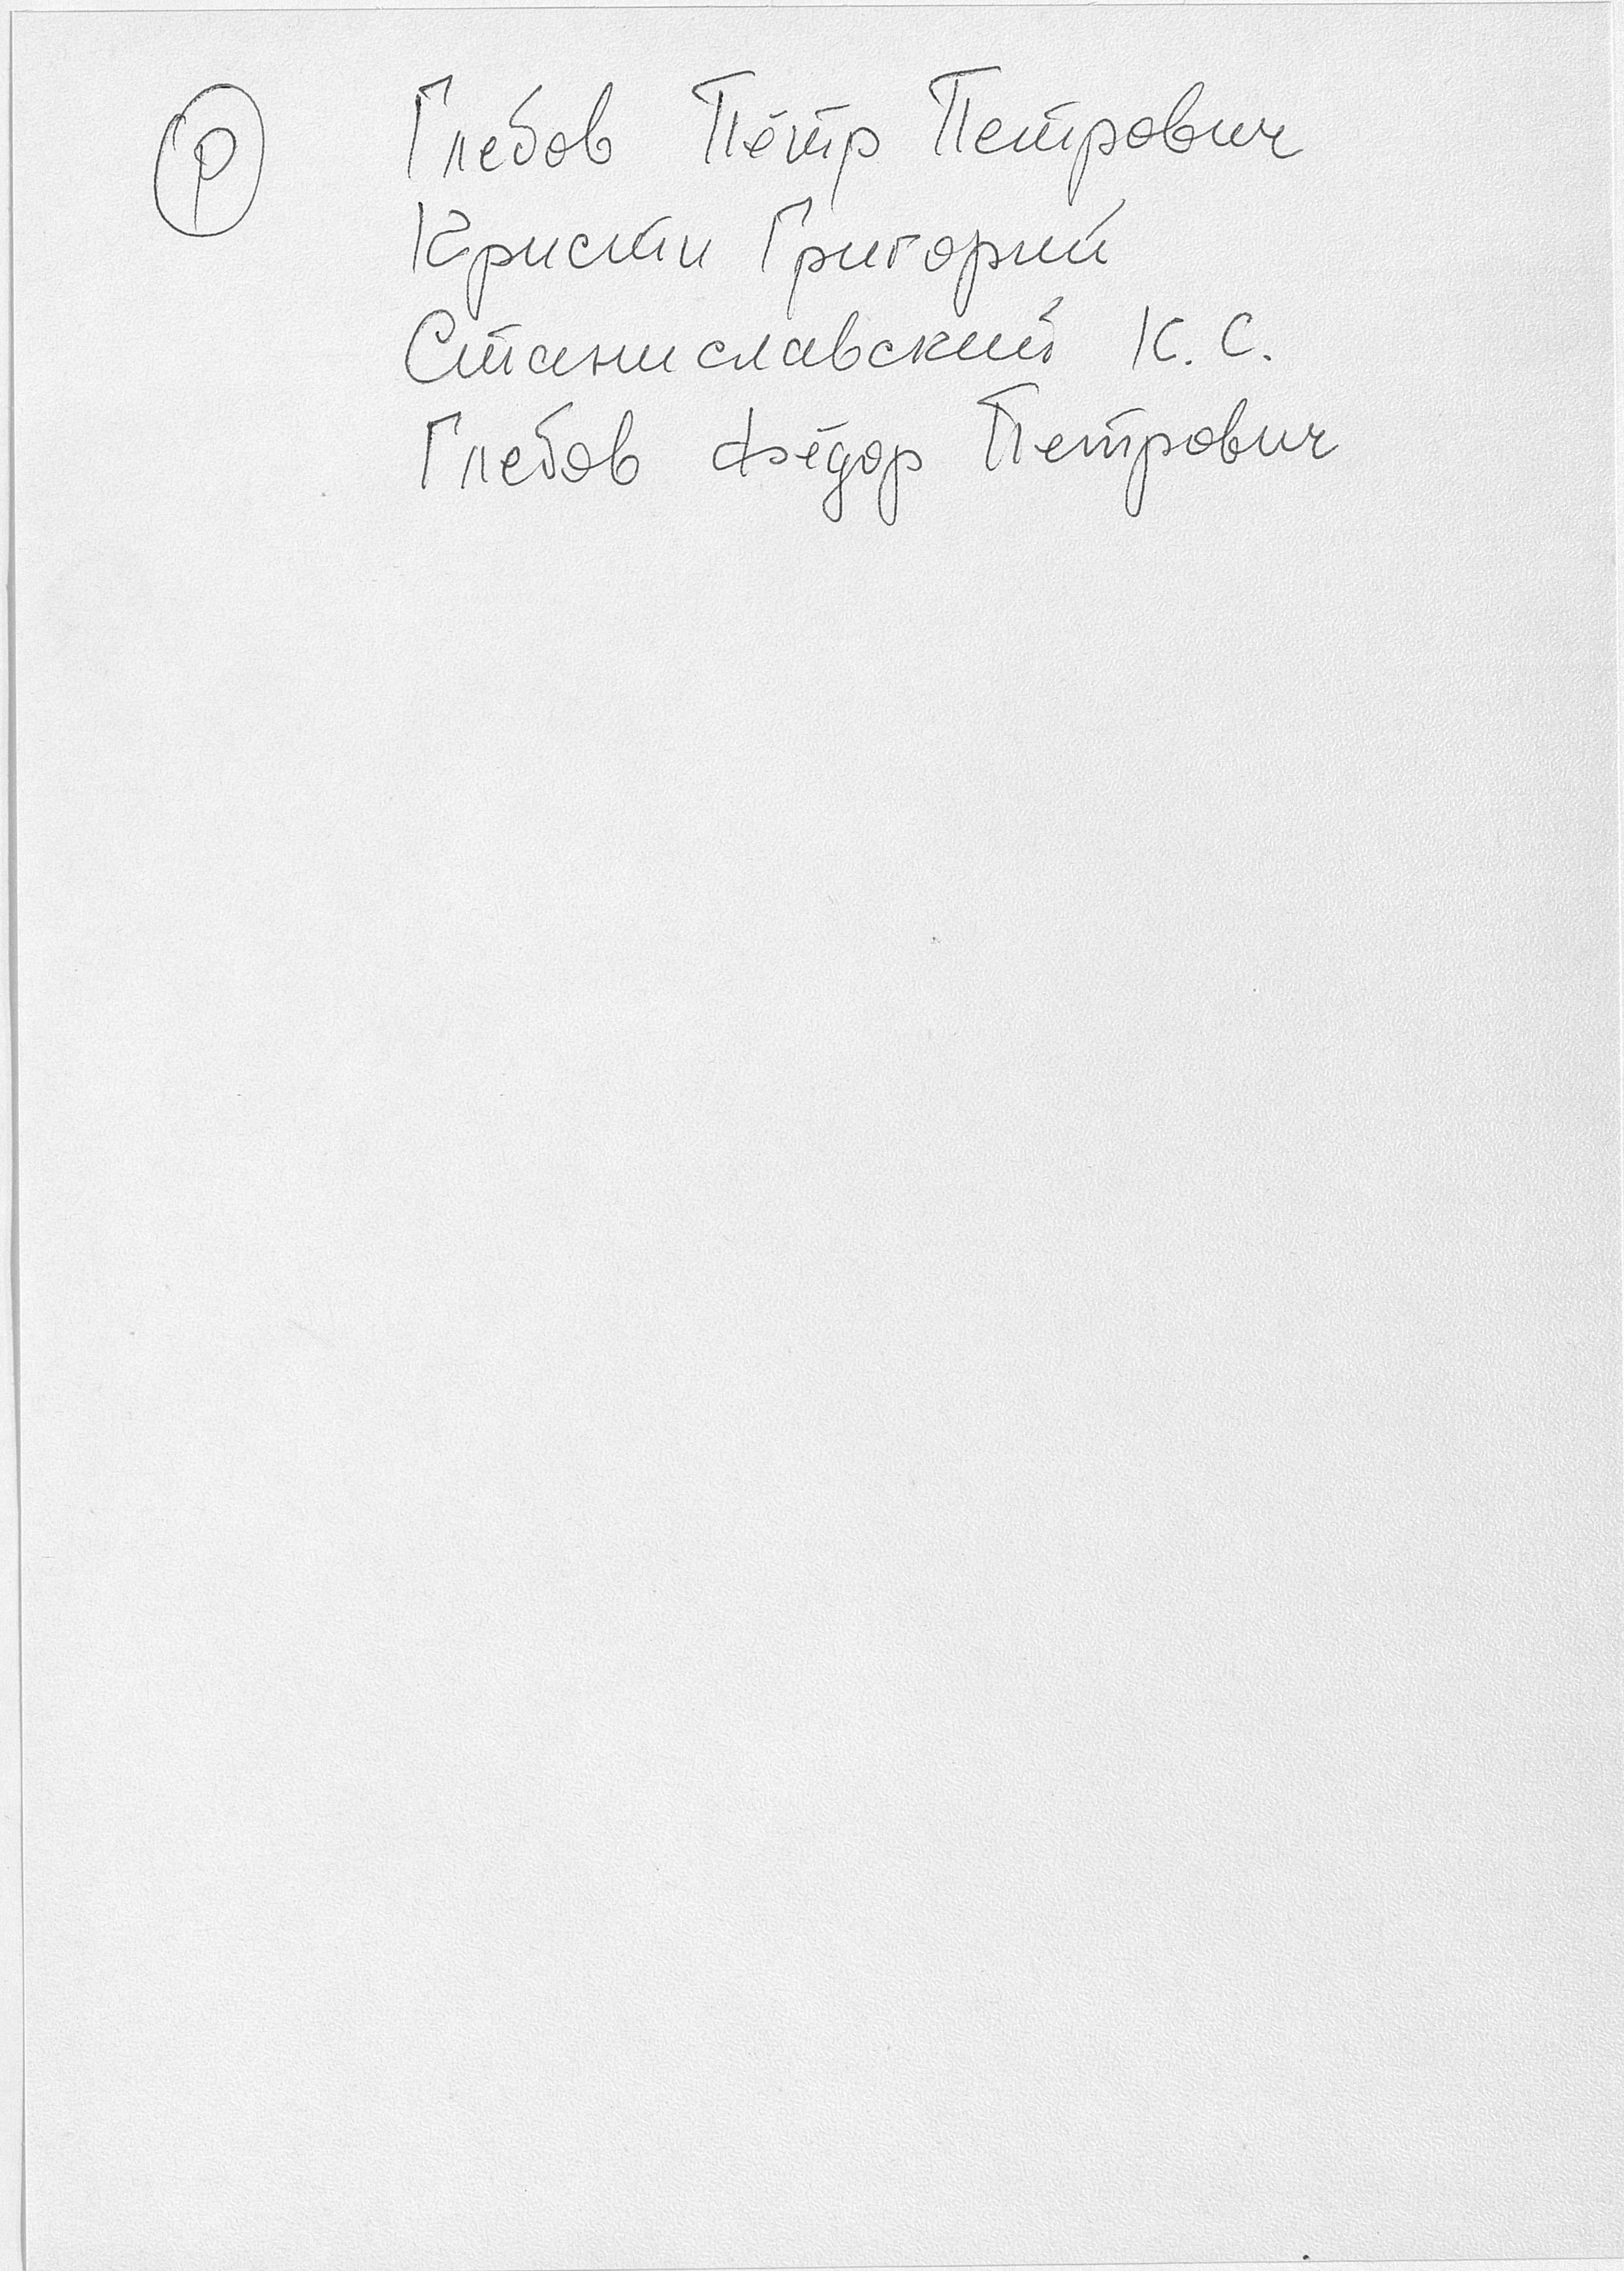 Р Глебов Пётр Петрович
Кристи Григорий
Станиславский К. С.
Глебов Фёдор Петрович